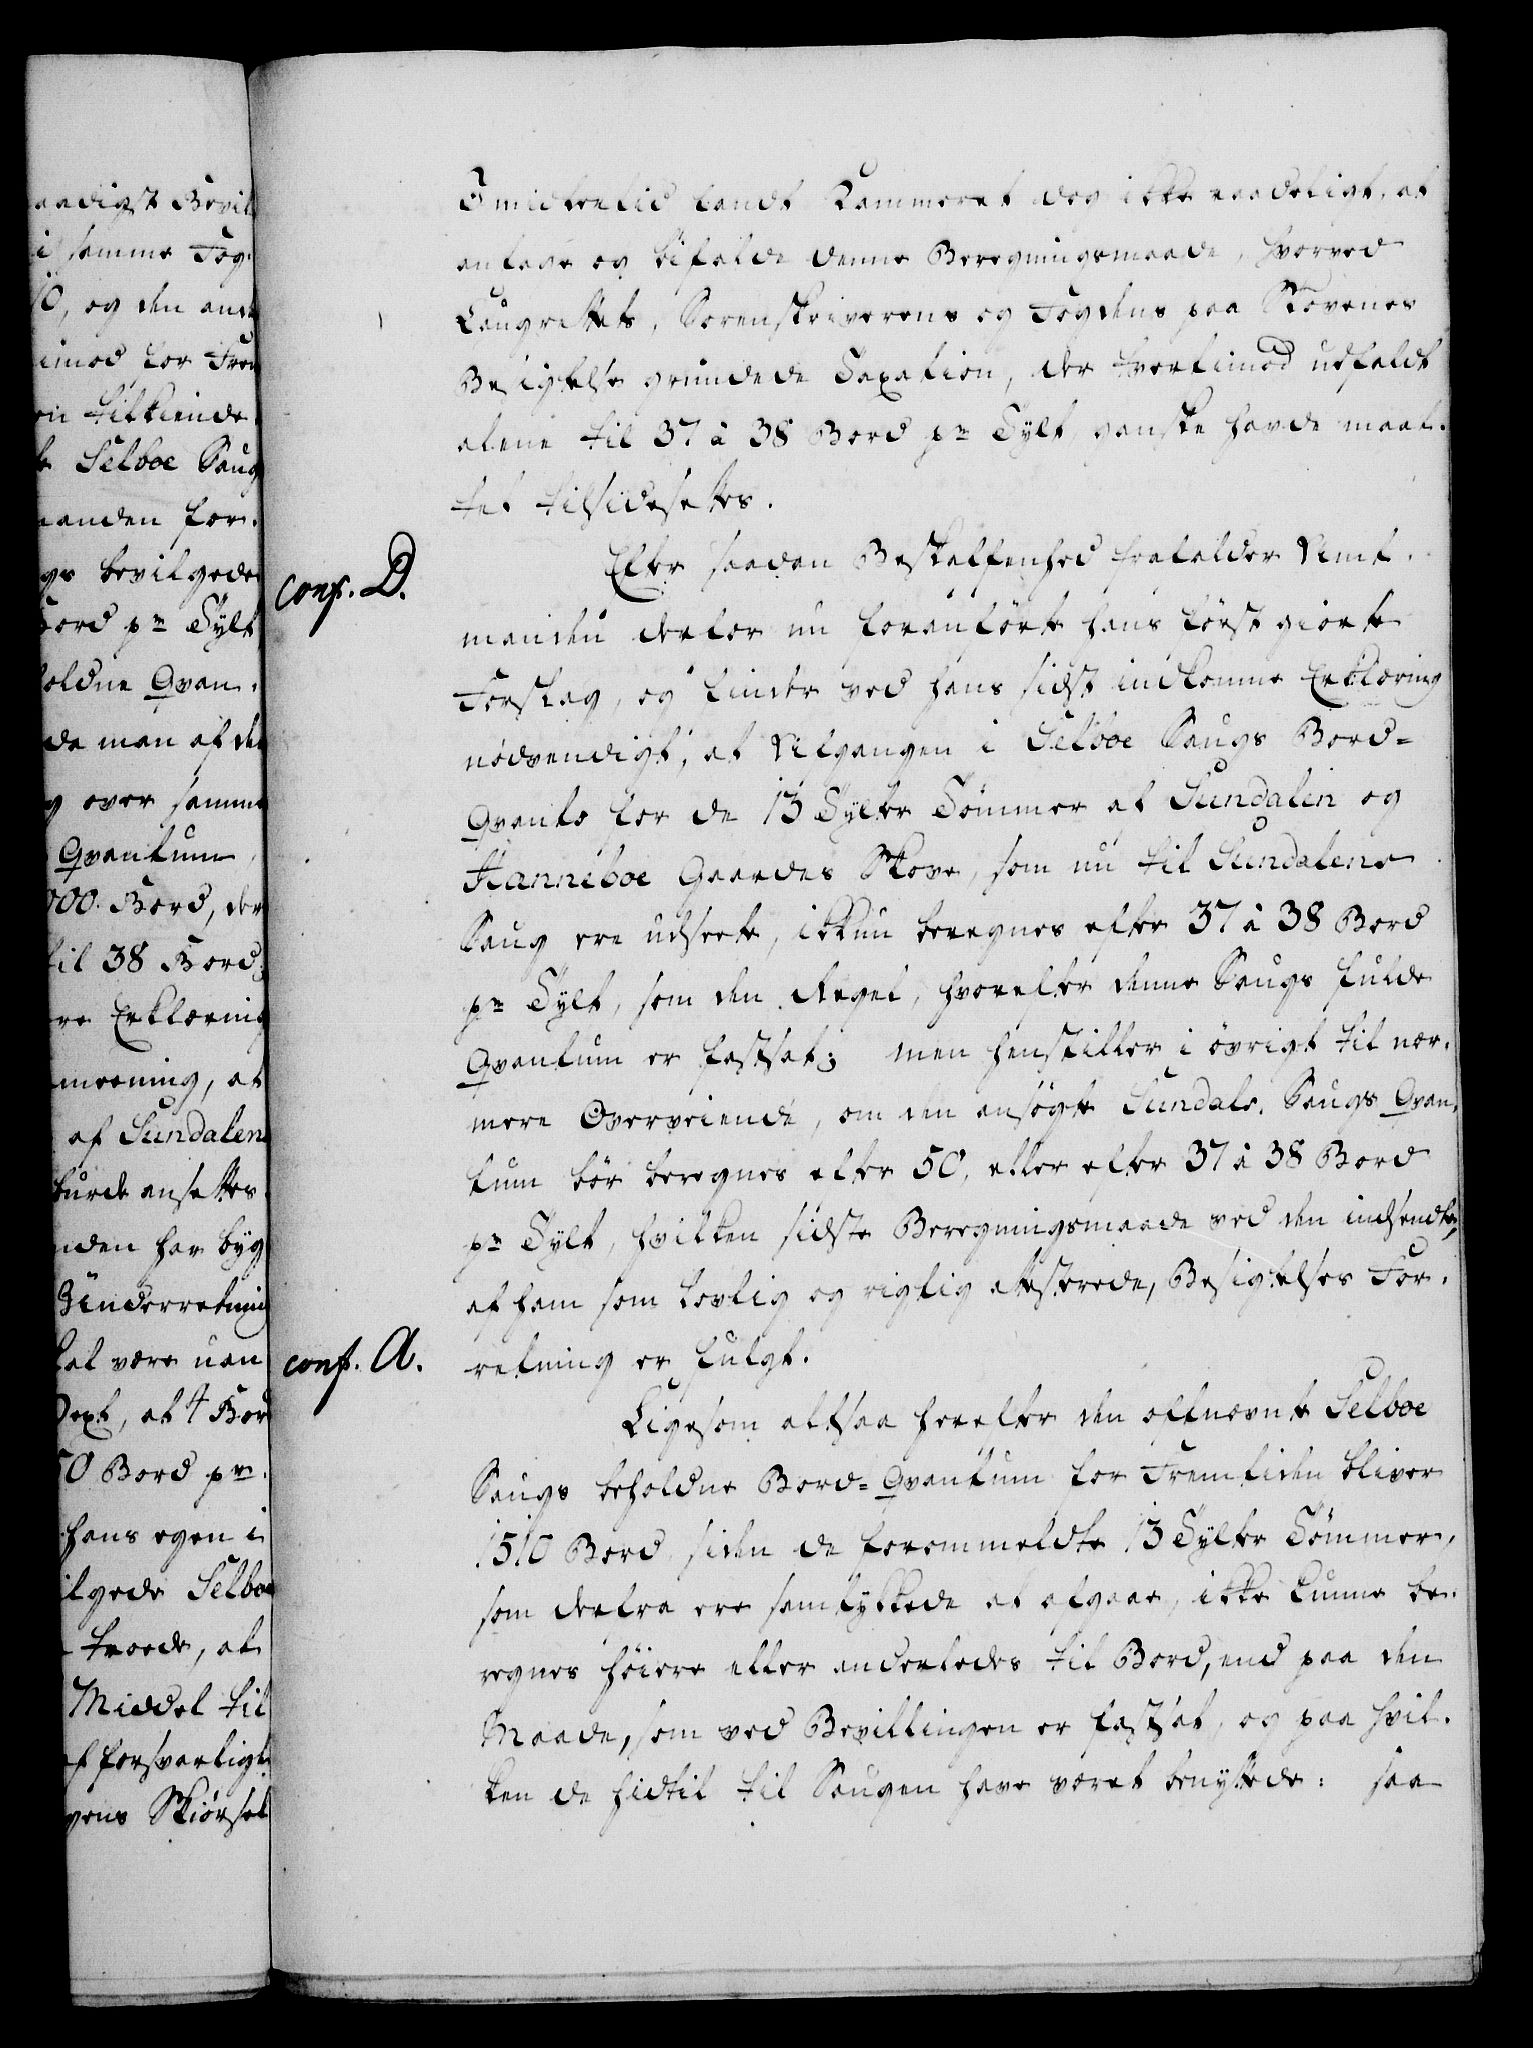 aadigst Bevil
i samme Fog
10, og den and
imod for Frem
en tilkiende
Selboe Saug
manden for-
gs bevilgede
Bord pr Tylt
holdne Qvan-
de man af den
g over samme
Qvantum
000 Bord, der
til 38 Bord;
re Erklæring
meening, at
af Sundalen
burde ansettes
nden har byg
Underretning
kal være uan
Text, at 4 Bor
50 Bord pr
hans egen i
ilgede Selboe
troede, at
Middel til
forsvarligt
vens Skiørsel
Imidlertid fandt Kammeret dog ikke raadeligt, at
antage og bifalde denne Beregningsmaade, hvorved
Laugrettets, Sorenskriverens og Fogdens paa Skovenes
Besigtelse grundede Taxation, der tvertimod udfaldt
alene til 37 à 38 Bord pr Tylt, ganske havde maat-
tet tilsidesettes.
conf. D.
Efter saadan Beskaffenhed frafalder Amt-
manden derfor nu foranførte hans først giorte
Forslag, og finder ved hans sidst indkomne Erklæring
nødvendigt, at Afgangen i Selboe Saugs Bord-
Qvanto for de 13 Tylter Tømmer af Sundalen og
Hanneboe Gaardes Skove, som nu til Sundalens
Saug ere udseete, ikkun beregnes efter 37 à 38 Bord
pr Tylt, som den Regel, hvorefter denne Saugs fulde
Qvantum er fastsat; men henstiller i øvrigt til nær-
mere Overveiende, om den ansøgte Sundals Saugs Qvan-
tum bør beregnes efter 50, eller efter 37 à 38 Bord
pr Tylt, hvilken sidste Beregningsmaade ved den indsendte,
af ham som lovlig og rigtig atesterede, Besigtelses For-
conf. A.
retning er fulgt.
Ligesom altsaa herefter den oftnævnte Selboe
Saugs beholdne Bord-Qvantum for Fremtiden bliver
1510 Bord, siden de forommeldte 13 Tylter Tømmer,
som derfra ere samtykkede at afgaae, ikke kunne be-
regnes høiere eller anderledes til Bord, end paa den
Maade, som ved Bevillingen er fastsat, og paa hvil-
ken de hidtil til Saugen have været benyttede: saa